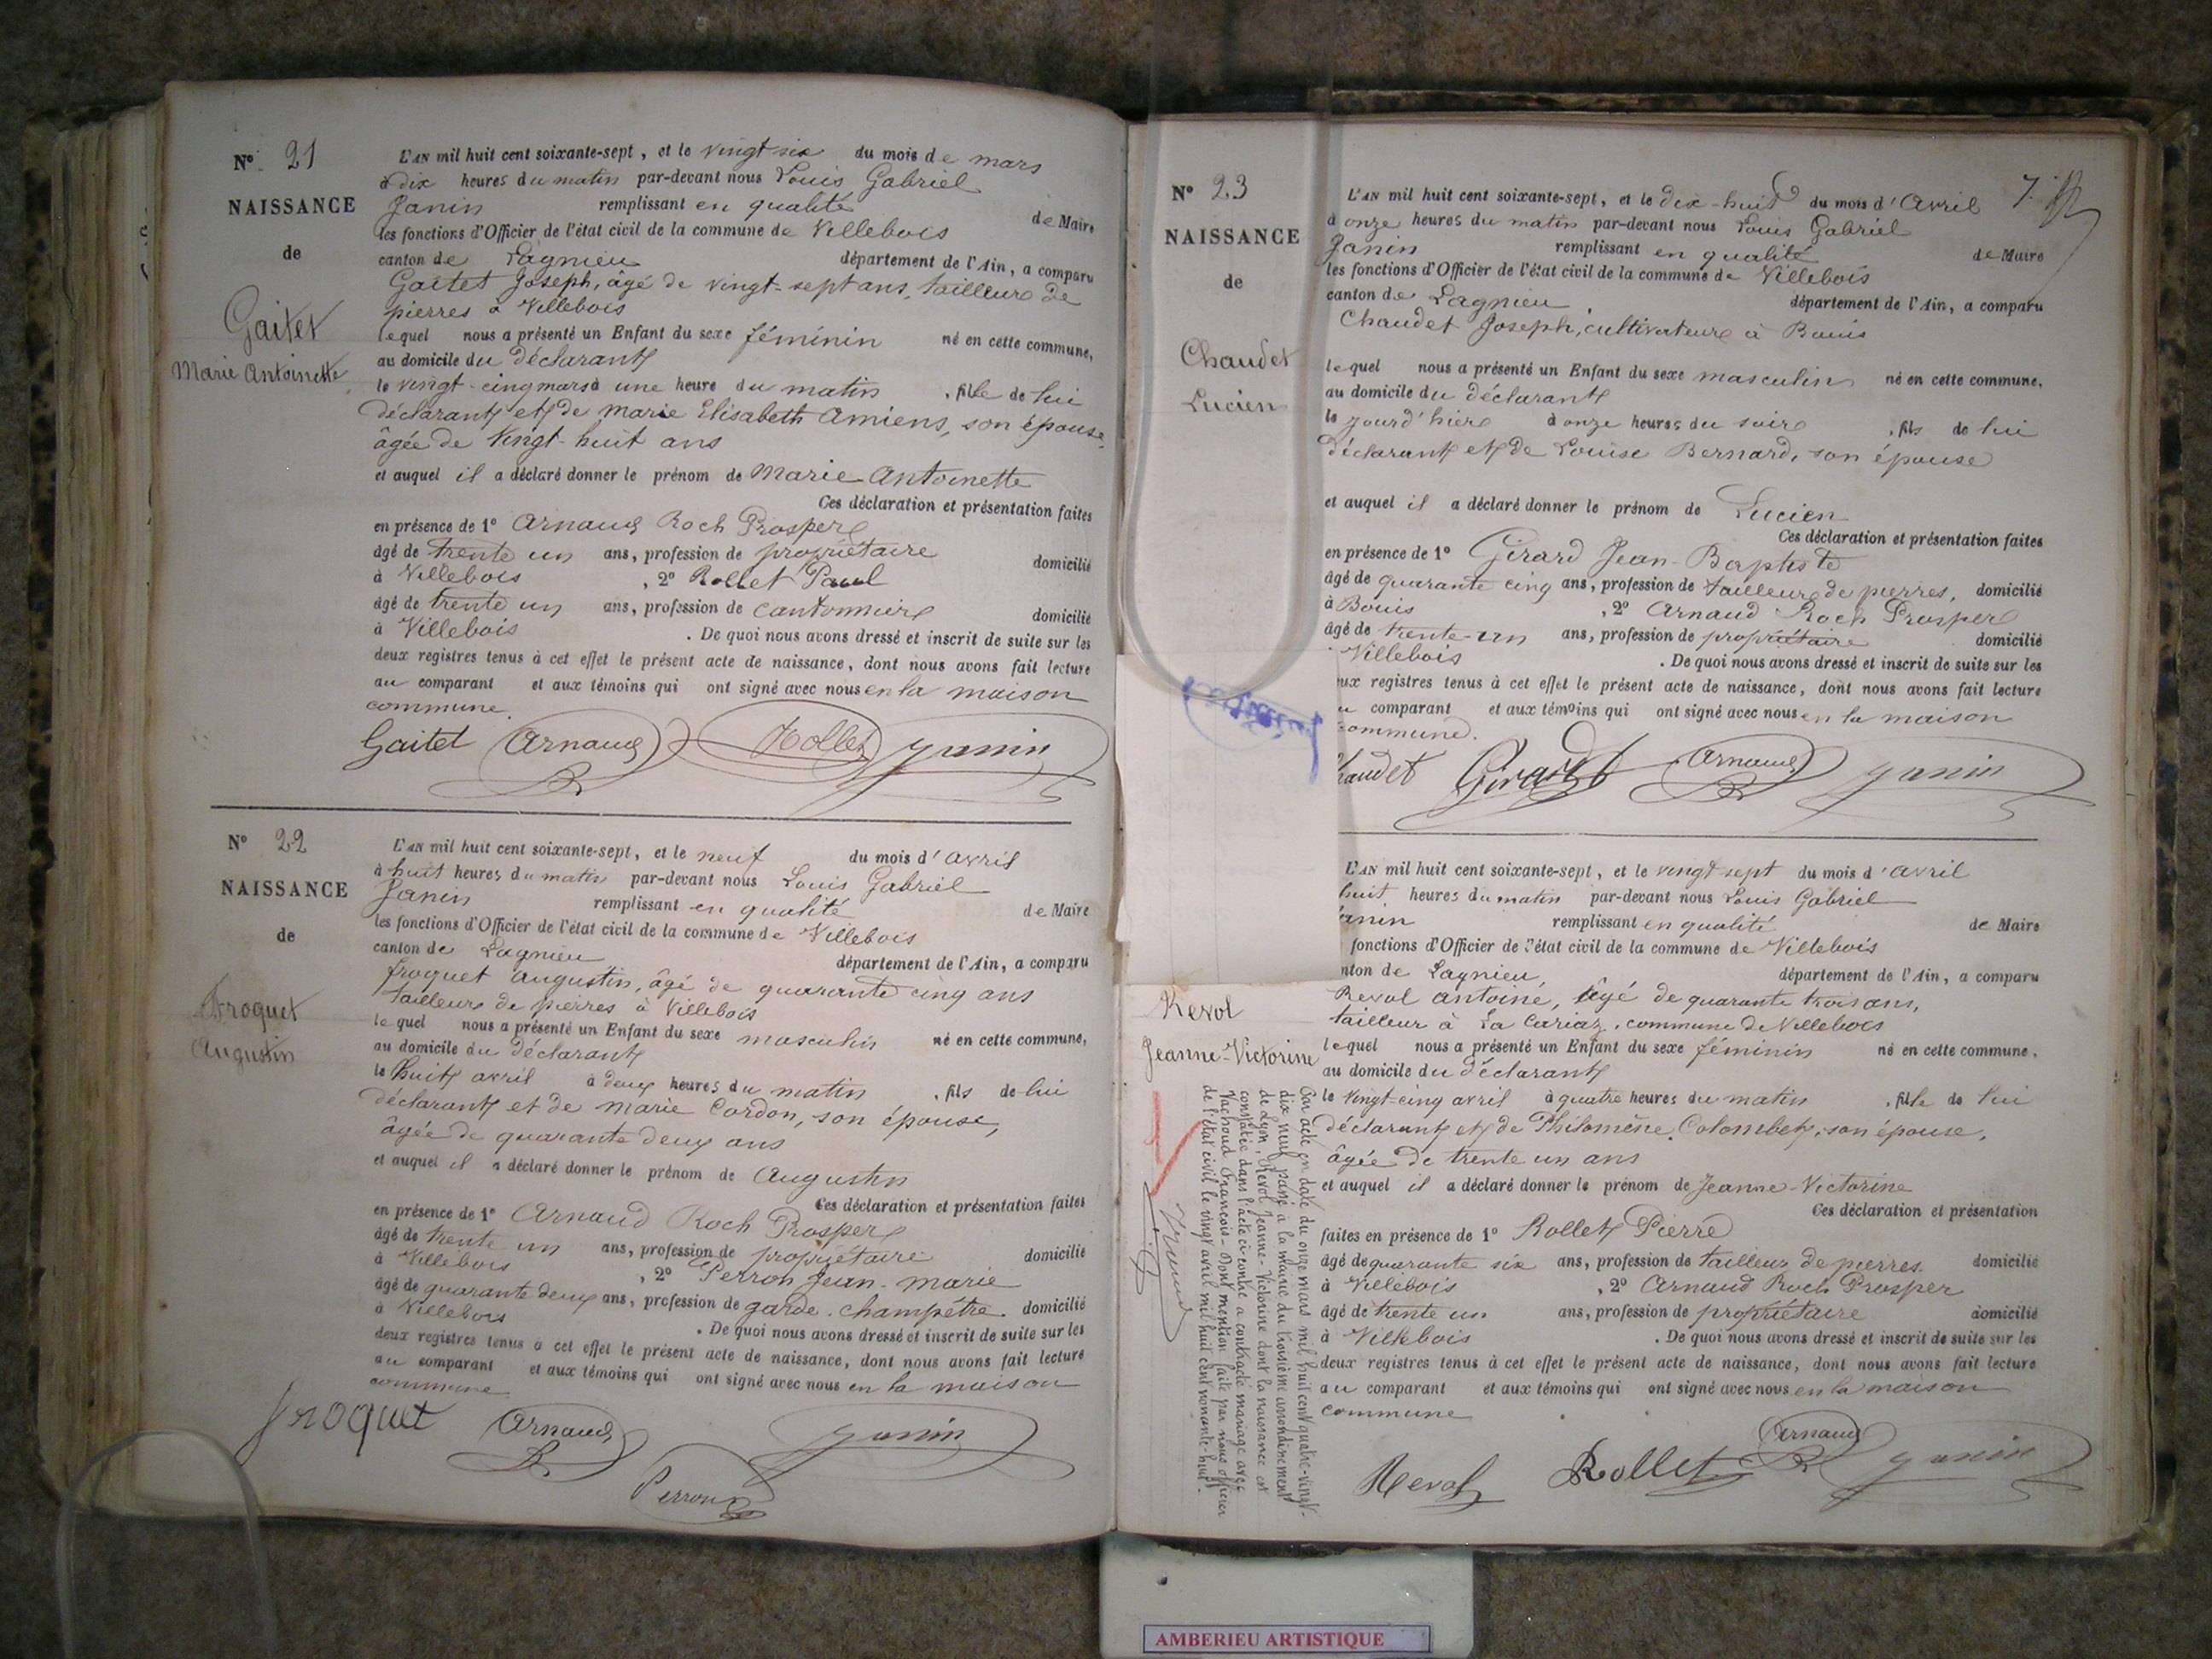 N° 21
NAISSANCE
de
Gaitet
Marie Antoinette
L'AN mil huit cent soixante-sept, et le vingt six du mois de mars
à dix heures du matin par-devant nous Louis Gabriel
Janin remplissant en qualité de Maire
les fonctions d'Officier de l'état civil de la commune de Villebois
canton de Lagnieu département de l'Ain, a comparu
Gaitet Joseph, âgé de vingt-sept ans, tailleur de
pierres à Villebois
lequel nous a présenté un Enfant du sexe féminin né en cette commune,
au domicile du déclarant
le vingt-cinq mars à une heure du matin, fille de lui
déclarant et de marie Elisabeth Amiens, son épouse
âgée de vingt-huit ans
et auquel il a déclaré donner le prénom de Marie Antoinette
Ces déclaration et présentation faites
en présence de 1° Arnaud Roch Prosper
âgé de trente un ans, profession de propriétaire domicilié
à Villebois, 2° Rollet Paul
âgé de trente un ans, profession de cantonnier domicilié
à Villebois. De quoi nous avons dressé et inscrit de suite sur les
deux registres tenus à cet effet le présent acte de naissance, dont nous avons fait lecture
au comparant et aux témoins qui ont signé avec nous en la maison
commune.
Gaitet Arnaud Rollet Janin
N° 22
NAISSANCE
de
Froquet
Augustin
L'AN mil huit cent soixante-sept, et le neuf du mois d'avril
à huit heures du matin par-devant nous Louis Gabriel
Janin remplissant en qualité de Maire
les fonctions d'Officier de l'état civil de la commune de Villebois
canton de Lagnieu département de l'Ain, a comparu
froquet augustin, âgé de quarante cinq ans
tailleur de pierres à Villebois
lequel nous a présenté un Enfant du sexe masculin né en cette commune,
au domicile du déclarant
le huit avril à deux heures du matin, fils de lui
déclarant et de marie Cordon, son épouse,
âgée de quarante deux ans
et auquel il a déclaré donner le prénom de Augustin
Ces déclaration et présentation faites
en présence de 1° Arnaud Roch Prosper
âgé de trente un ans, profession de propriétaire domicilié
à Villebois, 2° Perron Jean-marie
âgé de quarante deux ans, profession de garde-champêtre domicilié
à Villebois. De quoi nous avons dressé et inscrit de suite sur les
deux registres tenus à cet effet le présent acte de naissance, dont nous avons fait lecture
au comparant et aux témoins qui ont signé avec nous en la maison
commune
froquet Arnaud Janin
Perron
7.
N° 23
NAISSANCE
de
Chaudet
Lucien
L'AN mil huit cent soixante-sept, et le dix-huit du mois d'Avril
à onze heures du matin par-devant nous Louis Gabriel
Janin remplissant en qualité de Maire
les fonctions d'Officier de l'état civil de la commune de Villebois
canton de Lagnieu département de l'Ain, a comparu
Chaudet Joseph, cultivateur à Bouis
lequel nous a présenté un Enfant du sexe masculin né en cette commune,
au domicile du déclarant
le jourd'hier à onze heures du soir, fils de lui
déclarant et de Louise Bernard, son épouse
et auquel il a déclaré donner le prénom de Lucien
Ces déclaration et présentation faites
en présence de 1° Girard Jean-Baptiste
âgé de quarante cinq ans, profession de tailleur de pierres, domicilié
à Bouis, 2° Arnaud Roch Prosper
âgé de trente-un ans, profession de propriétaire domicilié
Villebois. De quoi nous avons dressé et inscrit de suite sur les
ux registres tenus à cet effet le présent acte de naissance, dont nous avons fait lecture
u comparant et aux témoins qui ont signé avec nous en la maison
commune.
haudet Girard Arnaud Janin
Revol
Jeanne-Victorine
L'AN mil huit cent soixante-sept, et le vingt sept du mois d'avril
huit heures du matin par-devant nous Louis Gabriel
anin remplissant en qualité de Maire
fonctions d'Officier de l'état civil de la commune de Villebois
nton de Lagnieu département de l'Ain, a comparu
Revol antoine, âgé de quarante trois ans,
tailleur à La Cariaz, commune de Villebois
lequel nous a présenté un Enfant du sexe féminin né en cette commune,
au domicile du déclarant
le vingt-cinq avril à quatre heures du matin, fille de lui
déclarant et de Philomène Colombet, son épouse,
âgée de trente un ans
et auquel il a déclaré donner le prénom de Jeanne-Victorine
Ces déclaration et présentation
faites en présence de 1° Rollet Pierre
âgé de quarante six ans, profession de tailleur de pierres domicilié
à Villebois, 2° Arnaud Roch Prosper
âgé de trente un ans, profession de propriétaire domicilié
à Villebois. De quoi nous avons dressé et inscrit de suite sur les
deux registres tenus à cet effet le présent acte de naissance, dont nous avons fait lecture
au comparant et aux témoins qui ont signé avec nous en la maison
commune
Revol Rollet Arnaud Janin
Par acte en date du onze mars mil huit cent quatre-vingt-
dix neuf passé à la mairie du troisième arrondissement
de Lyon, Revol Jeanne-Victorine dont la naissance est
constatée dans l'acte ci-contre a contracté mariage avec
Vachoud François. Dont mention faite par nous officier
de l'état civil le vingt avril mil huit cent nonante-neuf.
AMBERIEU ARTISTIQUE